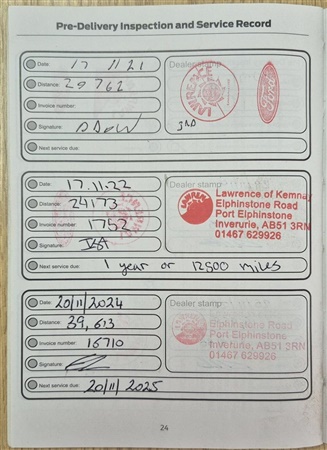 Pre-Delivery Inspection and Service Record
Date: 17 11 21
Dealer stamp
Distance: 29762
LAWRENCE
Ford
Invoice number:
3RD
Signature:
Next service due:
Date: 17.11.22
Dealer stamp
Distance: 24173
Lawrence of Kemnay
Elphinstone Road
Invoice number: 1752
Port Elphinstone
Inverurie, AB51 3RN
Signature:
01467 629926
Next service due: 1 year or 12500 miles
Date: 20/11/2024
Dealer stamp
Distance: 39,613
Elphinstone Road
Port Elphinstone
Invoice number: 16710
Inverurie, AB51 3RN
01467 629926
Signature:
Next service due: 20/11/2025
24